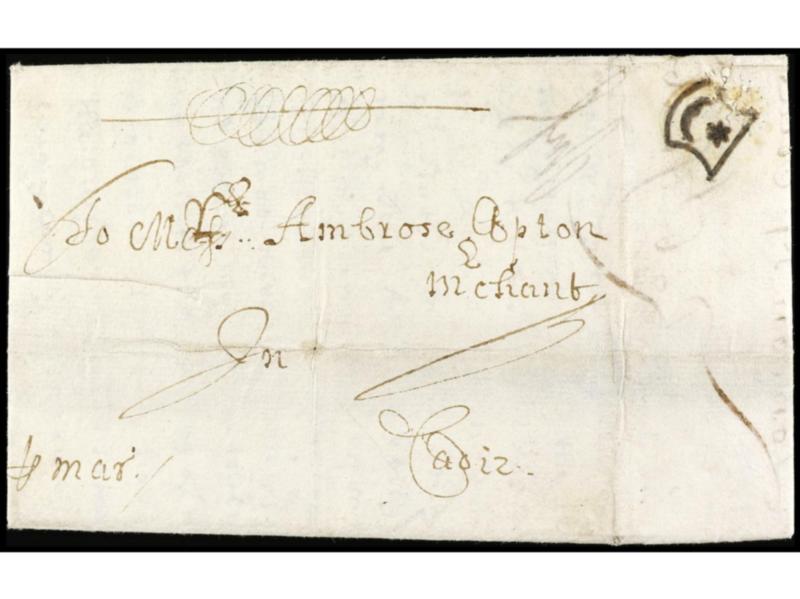 To Mr Ambrose Upton
Mchant
In
Cadiz
p mar